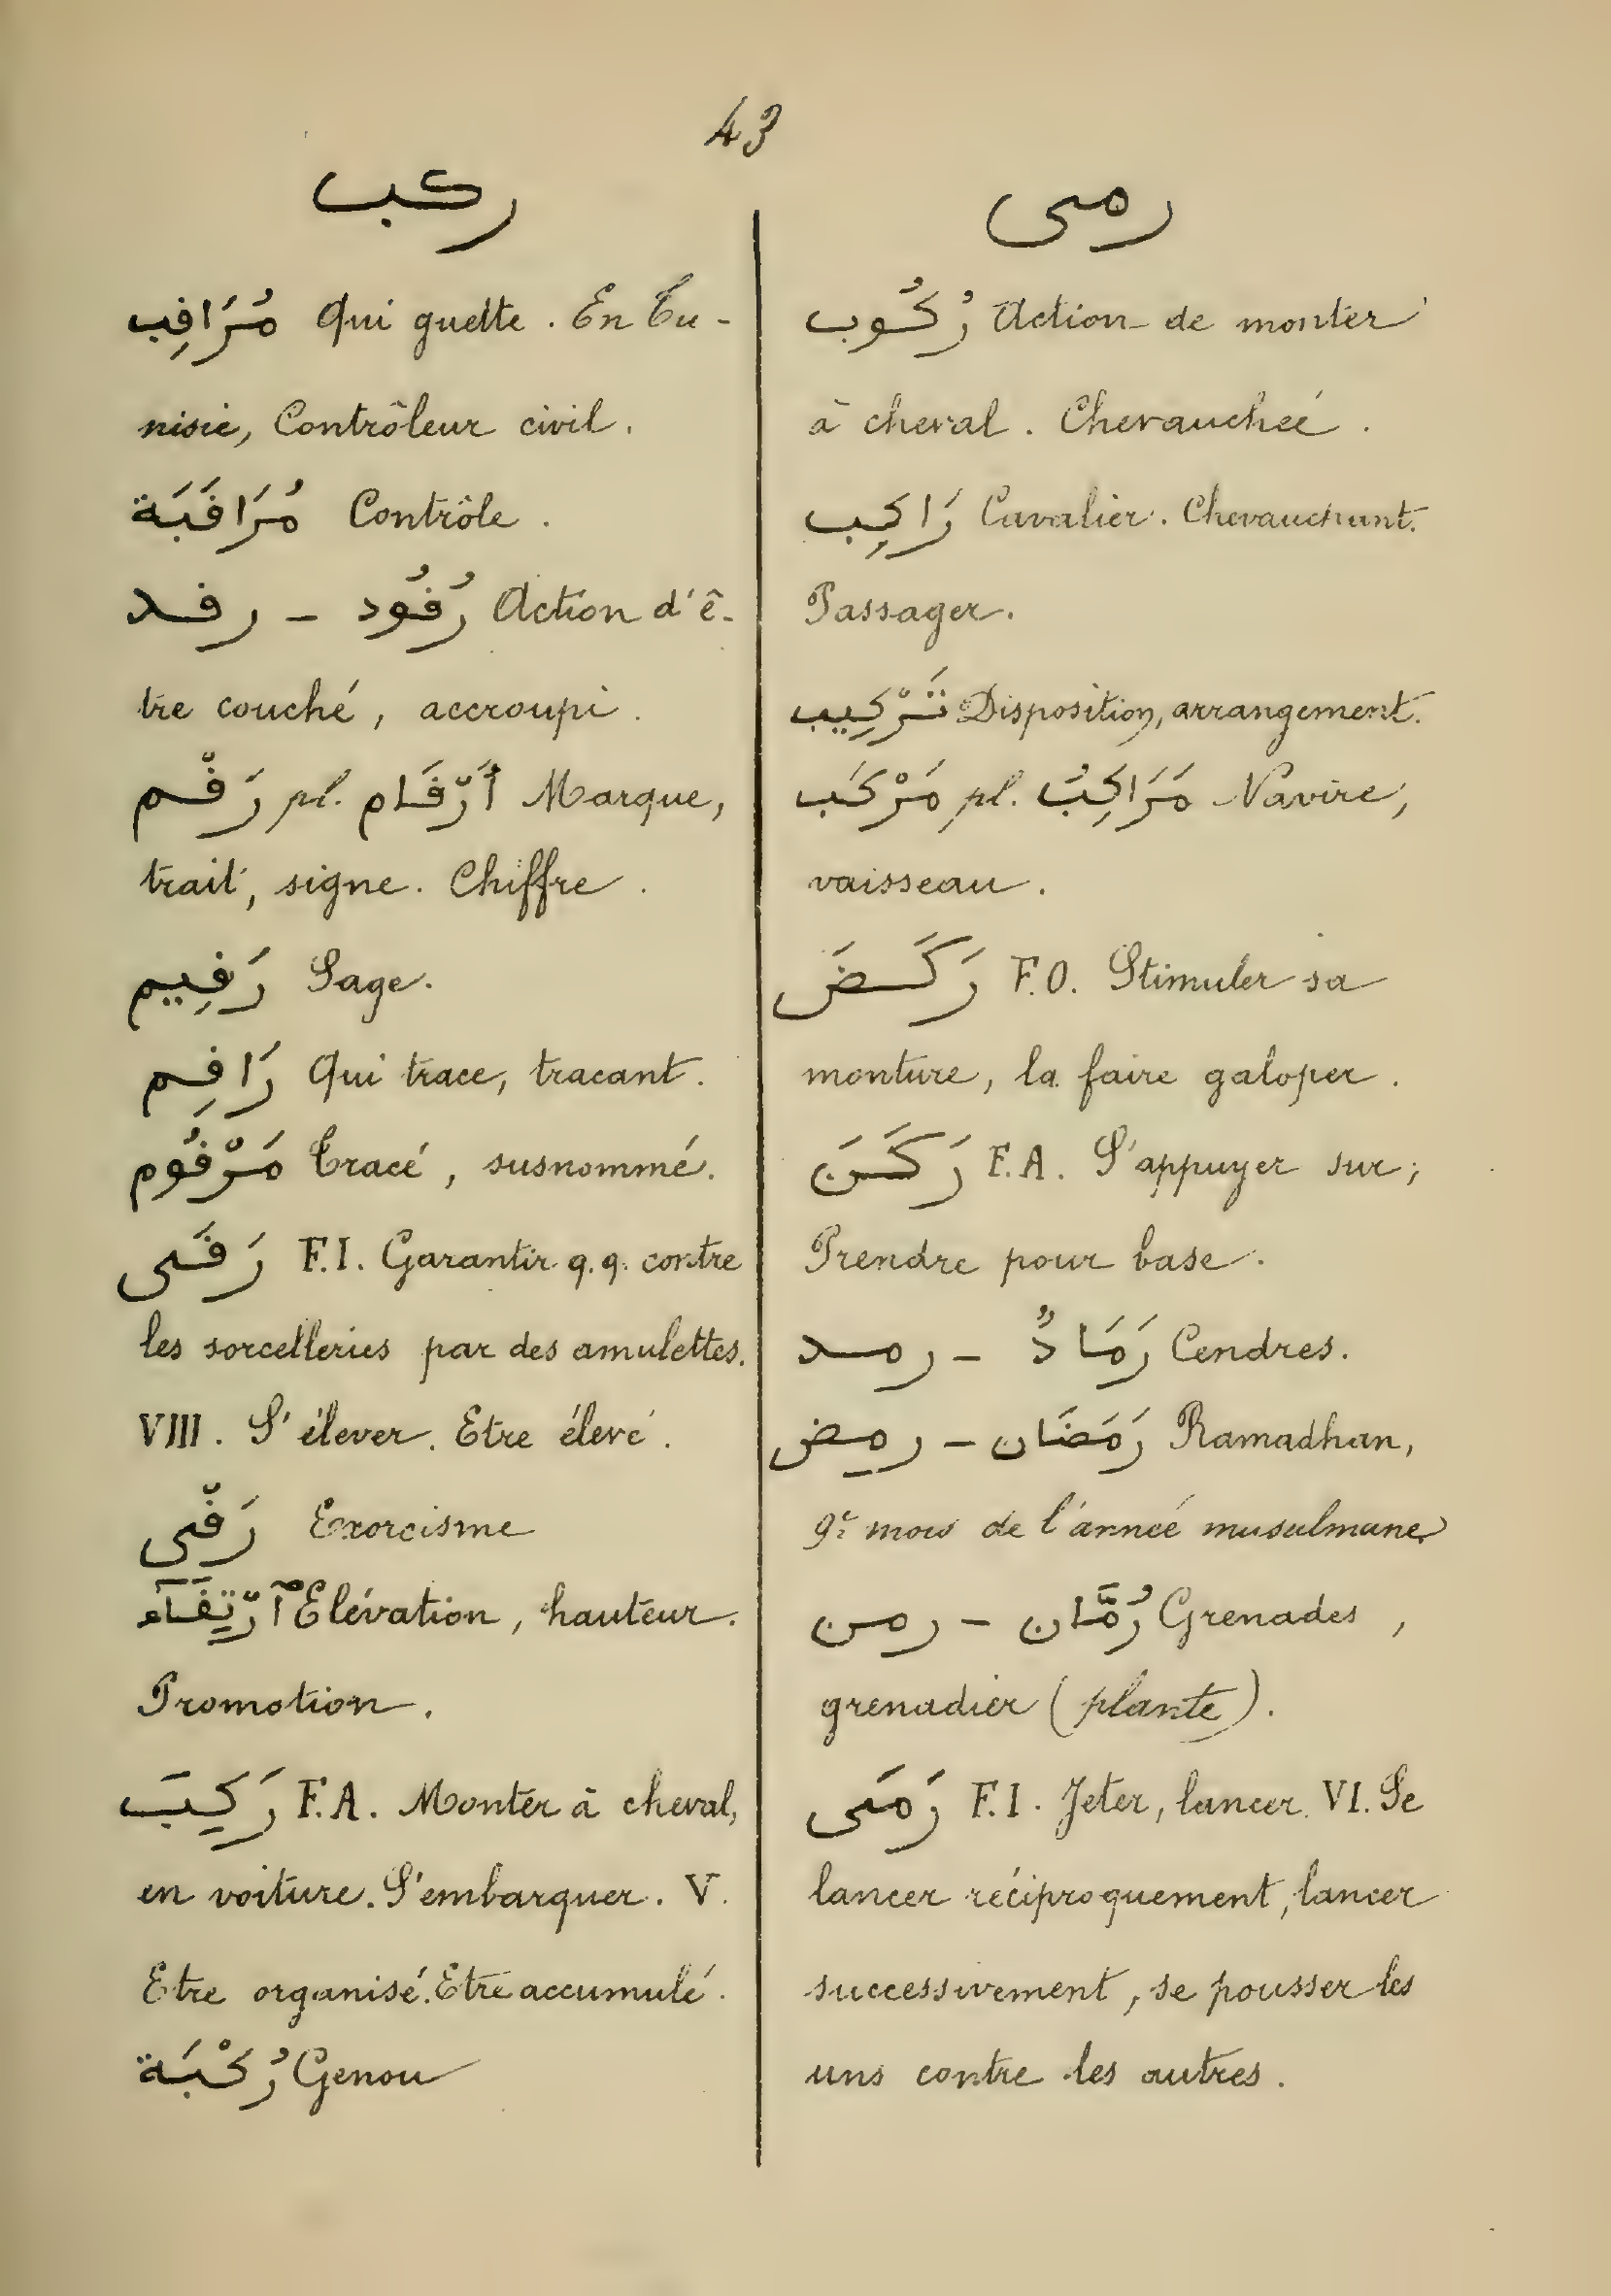 43
ركب
مُرَاقِب Qui guette. En Tu-
nisie, Contrôleur civil.
مُرَاقَبَة Contrôle.
رقد - رُقُود Action d'ê-
tre couché, accroupi.
رَقْم pl. أَرْقَام Marque,
trait, signe. Chiffre.
رَقِيم Sage.
رَاقِم Qui trace, tracant.
مَرْقُوم Tracé, susnommé.
رَقَى F.I. Garantir q.q. contre
les sorcelleries par des amulettes.
VIII. S'élever. Etre élevé.
رَقْى Exorcisme
ٱرْتِقَآء Elévation, hauteur.
Promotion.
رَكِبَ F.A. Monter à cheval,
en voiture. S'embarquer. V.
Etre organisé. Etre accumulé.
رُكْبَة Genou
رمى
رُكُوب Action de monter
à cheval. Chevauchée.
رَاكِب Cavalier. Chevauchant.
Passager.
تَرْكِيب Disposition, arrangement.
مَرْكَب pl. مَرَاكِبُ Navire,
vaisseau.
رَكَضَ F.O. Stimuler sa
monture, la faire galoper.
رَكَنَ F.A. S'appuyer sur;
Prendre pour base.
رمد - رَمَادٌ Cendres.
رمض - رَمَضَان Ramadhan,
9e mois de l'année musulmane
رمن - رُمَّان Grenades,
grenadier (plante).
رَمَى F.I. Jeter, lancer. VI. Se
lancer réciproquement, lancer
successivement, se pousser les
uns contre les autres.